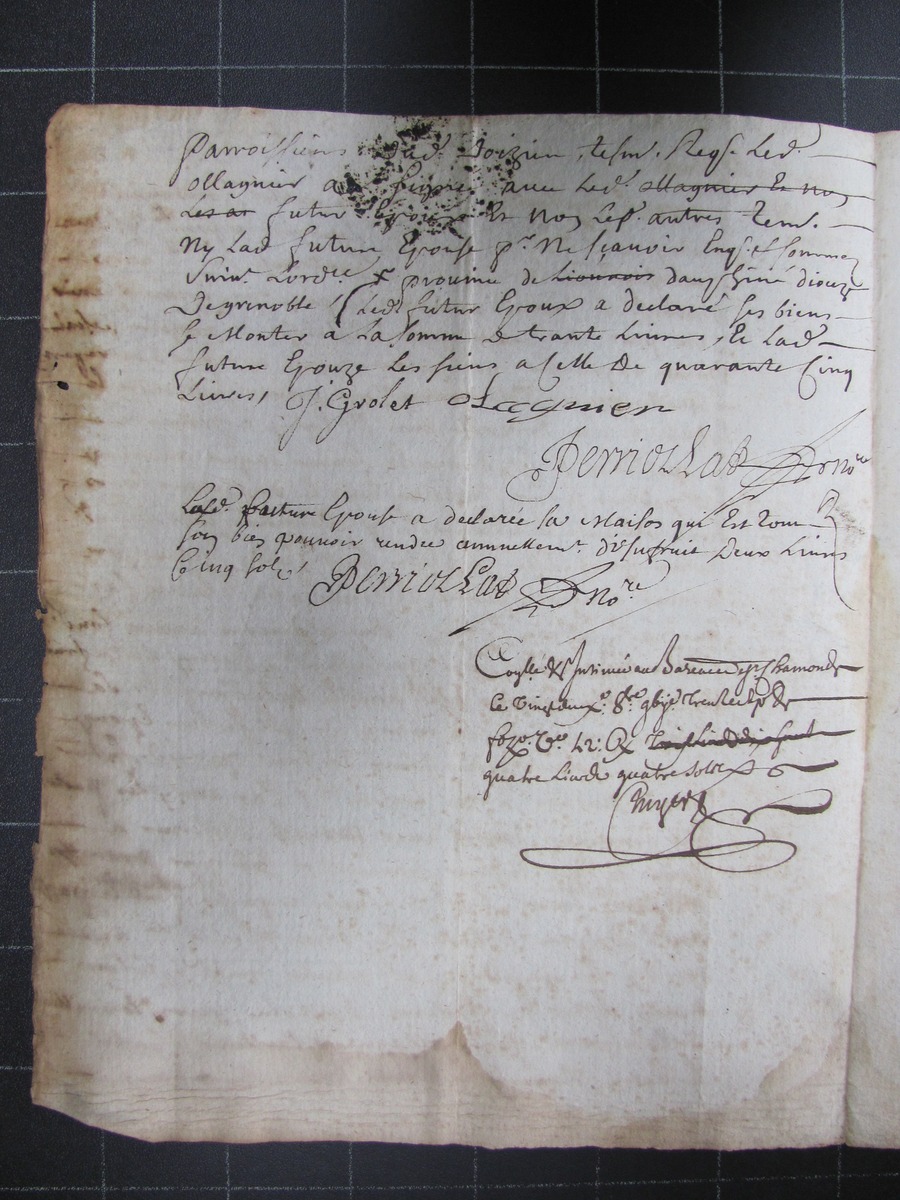 Parroissiens dud. Doizieu, tesm. Reqs. Led.
Ollagnier a signé avec Led. Ollagnier Et non
Les at futur Epoux Et non Les autres tem.
Ny Lad future Epouse pr. Ne sçavoir Enq. et sommes
Suiv. Lord.ce x province de Lionnois dauphiné dioceze
De grenoble / Led. futur Epoux a declaré ses biens
se Monter a La somme de trante Livres, Et Lad.
future Epouze Les siens a Celle De quarante Cinq
Livres,
J. Grolet Olagnier
Perriollat nore
Lad. future Epouse a declarée sa Maison qui Est tout
son bien pouvoir rendre annuellemt. D'usufruit Deux Livres
Cinq solz,
Perriollat nore
Conllé & Insinué au Bureau de St Chamond
Le Vingt deuxe. 8bre
quatre Livre quatre solz